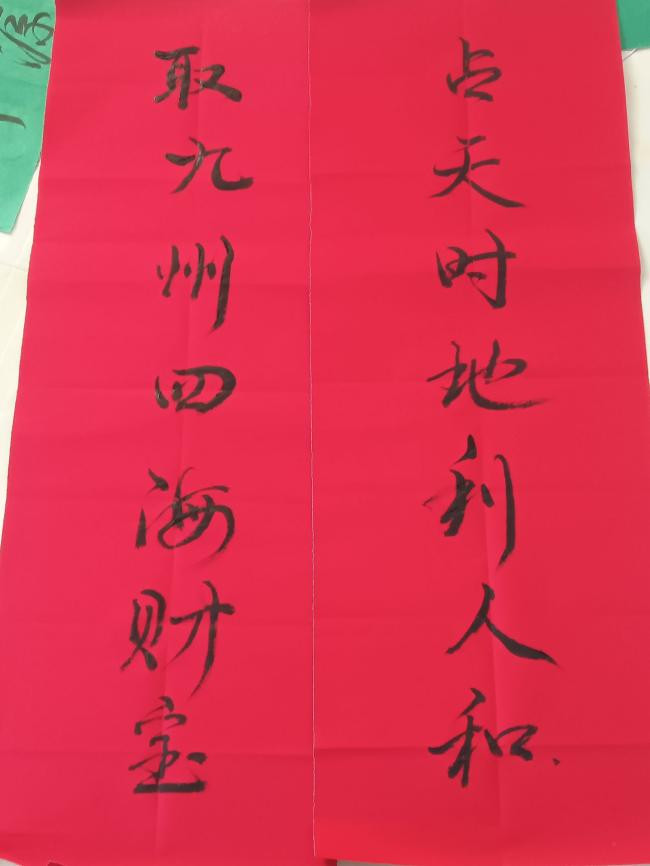 占天时地利人和
取九州四海财宝